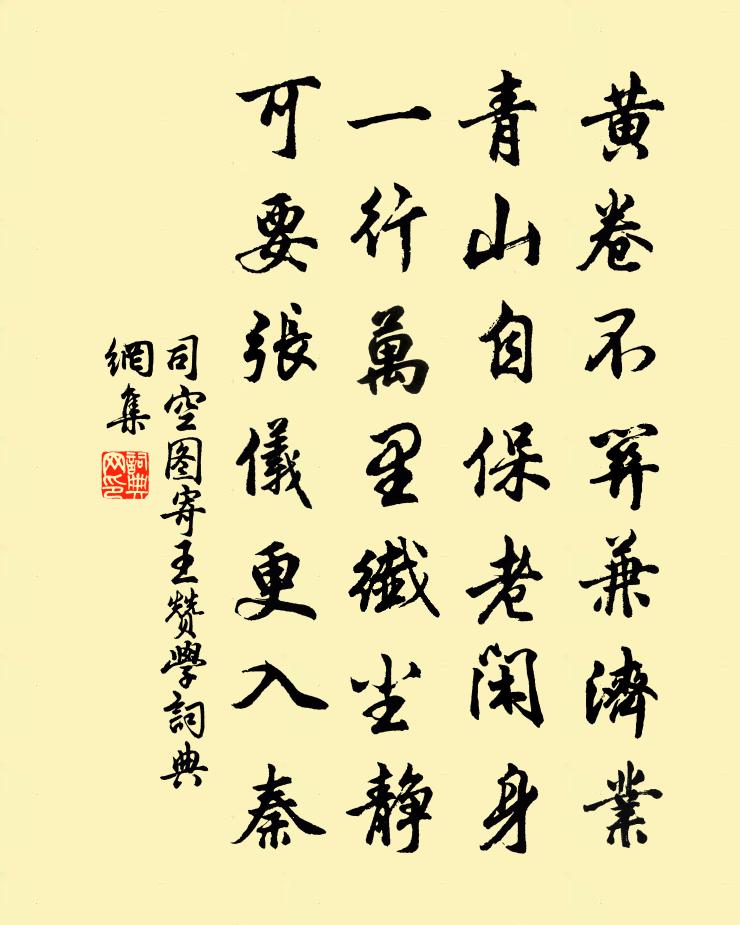 黄卷不關兼濟業
青山自保老閑身
一行萬里纖尘静
可要張儀更入秦
司空图寄王贊學詞典
網集
詞典
网印